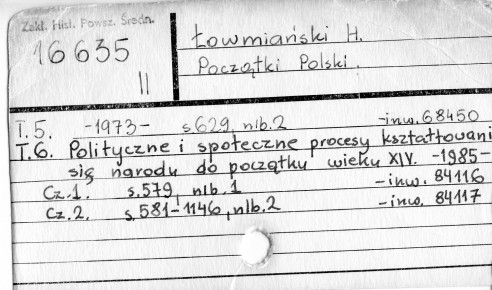 Zakł. Hist. Powsz. Średn.
16635
II
Łowmiański H.
Początki Polski.
T.5. -1973- s.629, nlb.2 -inw.68450
T.6. Polityczne i społeczne procesy kształtowani
się narodu do początku wieku XIV. -1985-
Cz.1. s.579, nlb.1 -inw. 84116
Cz.2. s.581-1146, nlb.2 -inw. 84117